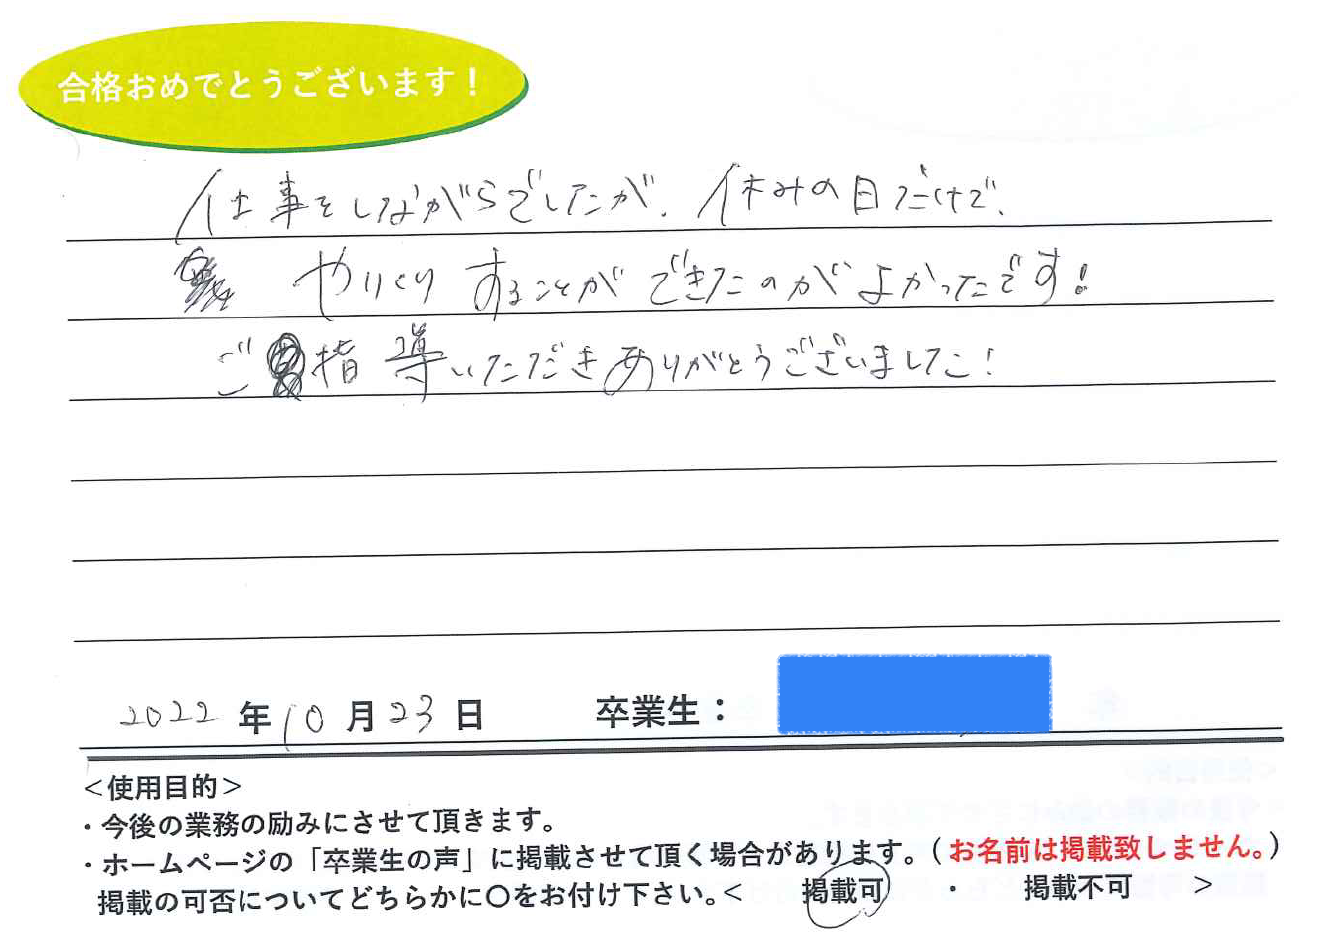 合格おめでとうございます！
仕事をしながらでしたが、休みの日だけで、
やりくりすることができたのがよかったです！
ご指導いただきありがとうございました！
2022年10月23日　卒業生：
＜使用目的＞
・今後の業務の励みにさせて頂きます。
・ホームページの「卒業生の声」に掲載させて頂く場合があります。（お名前は掲載致しません。）
掲載の可否についてどちらかに〇をお付け下さい。＜　掲載可　・　掲載不可　＞